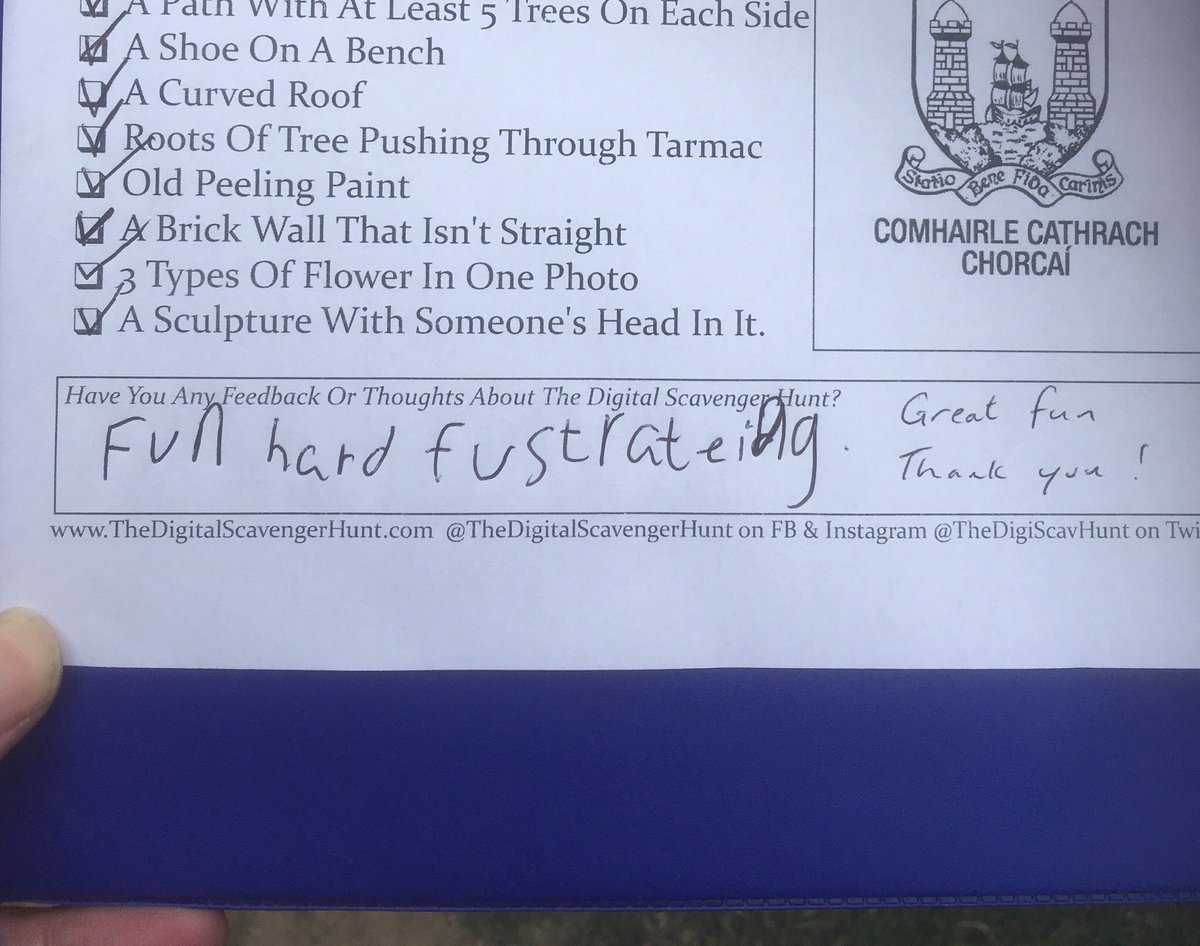 A Path With At Least 5 Trees On Each Side
A Shoe On A Bench
A Curved Roof
Roots Of Tree Pushing Through Tarmac
Old Peeling Paint
A Brick Wall That Isn't Straight
3 Types Of Flower In One Photo
A Sculpture With Someone's Head In It.
Statio Bene Fida Carinis
COMHAIRLE CATHRACH
CHORCAÍ
Have You Any Feedback Or Thoughts About The Digital Scavenger Hunt?
Fun hard fustrateing.
Great fun
Thank you!
www.TheDigitalScavengerHunt.com @TheDigitalScavengerHunt on FB & Instagram @TheDigiScavHunt on Twi